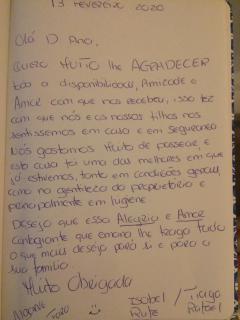 13 FEVEREIRO 2020
Olá D. Ana,
Quero MUITO lhe AGRADECER
toda a disponibilidade, Amizade e
Amor com que nos recebeu, isso fez
com que nós e os nossos filhos nos
sentissemos em casa e em segurança
Nós gostamos Muito de passear, e
esta casa foi uma das melhores em que
já estivemos, tanto em condições gerais,
como na gentileza do proprietário e
principalmente em higiene
Desejo que essa Alegria e Amor
contagiante que emana lhe traga tudo
o que mais deseja para si e para a
sua família.
Muito Obrigada
Isabel / Tiago
Rute Rafael